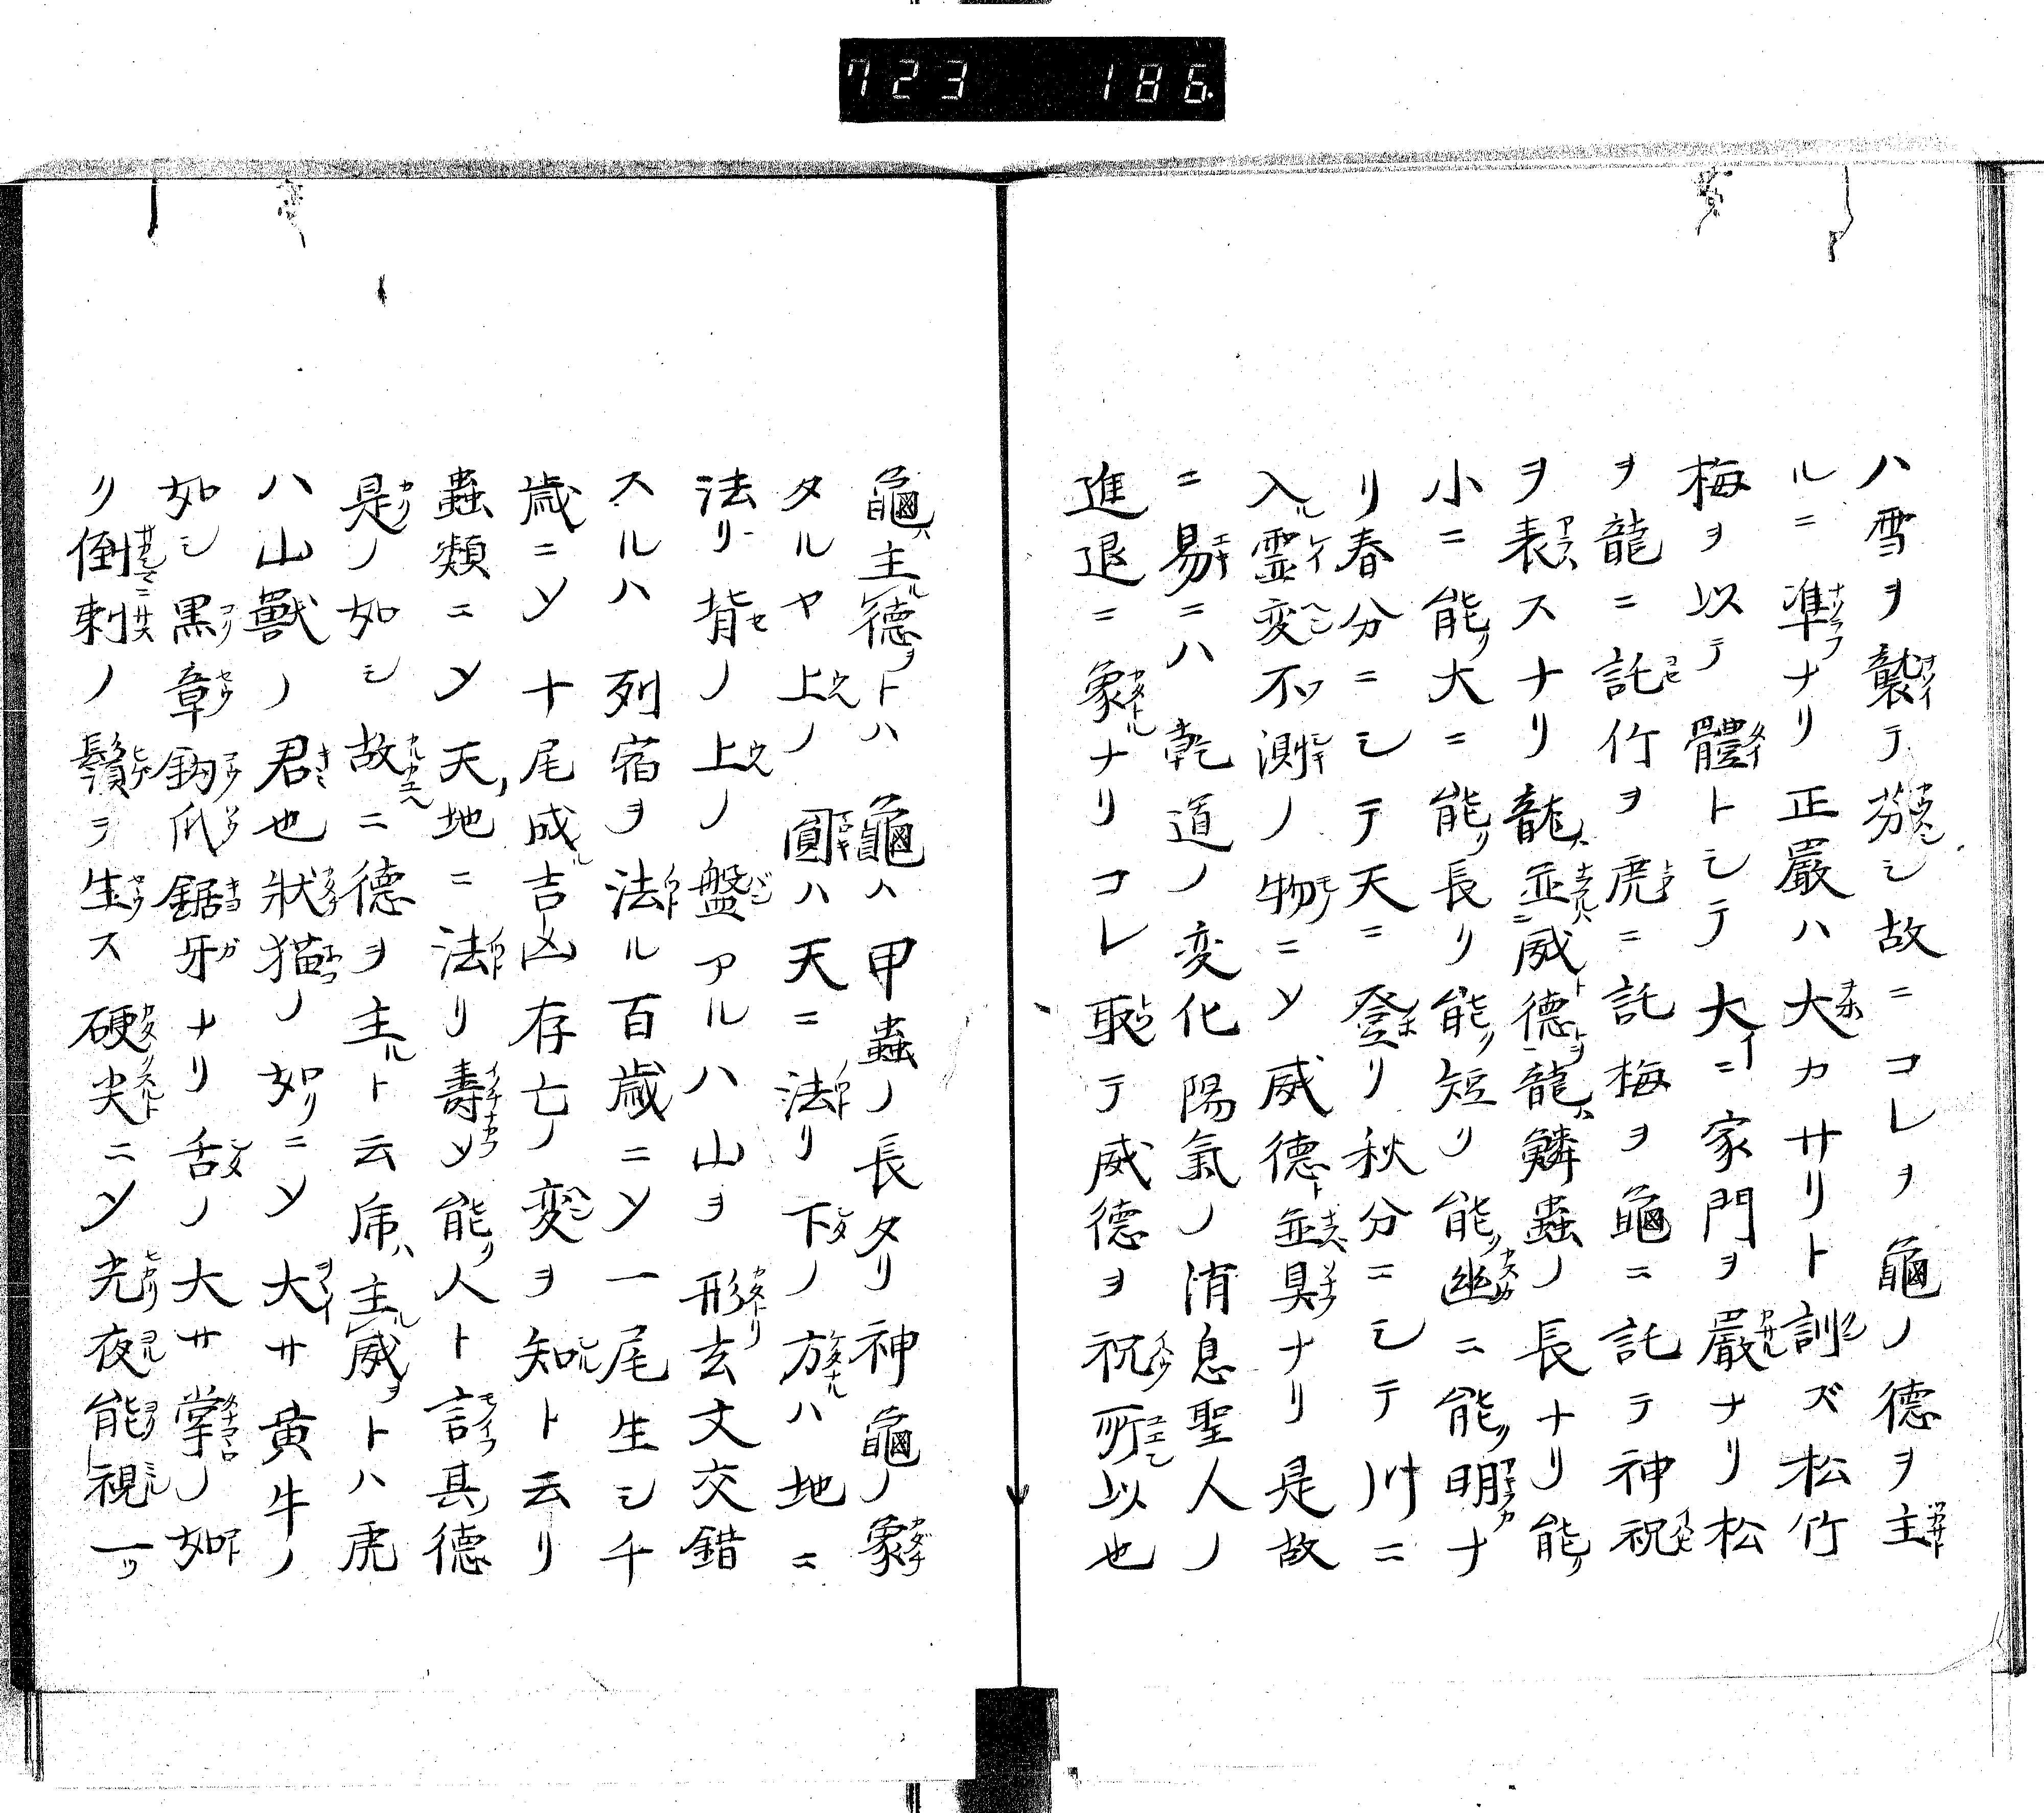 723 186
ハ雪ヲ襲テ芬シ故ニコレヲ龜ノ德ヲ主
ルニ準ナリ正嚴ハ大カサリト訓ズ松竹
梅ヲ以テ體トシテ大ニ家門ヲ嚴ナリ松
ヲ龍ニ託竹ヲ虎ニ託梅ヲ龜ニ託テ神祝
ヲ表スナリ龍並威德龍鱗蟲ノ長ナリ能
小ニ能大ニ能長リ能短リ能幽ニ能明ナ
リ春分ニシテ天ニ登リ秋分ニシテ川ニ
入霊変不測ノ物ニソ威德並具ナリ是故
ニ易ニハ乾道ノ変化陽氣ノ消息聖人ノ
進退ニ象ナリコレ取テ威德ヲ祝所以也
龜主德トハ龜ハ甲蟲ノ長タリ神龜ノ象
タルヤ上ノ圓ハ天ニ法リ下ノ方ハ地ニ
法リ背ノ上ノ盤アルハ山ヲ形玄文交錯
スルハ列宿ヲ法ル百歳ニソ一尾生シ千
歳ニソ十尾成吉凶存亡ノ変ヲ知ト云リ
蟲類ニソ天地ニ法リ壽ソ能人ト言其德
是ノ如シ故ニ德ヲ主ト云虎主威トハ虎
ハ山獸ノ君也狀猫ノ如リニソ大サ黄牛ノ
如シ黒章鈎爪鋸牙ナリ舌ノ大サ掌ノ如
リ倒刺ノ鬚ヲ生ス硬尖ニソ光夜能視一ツ